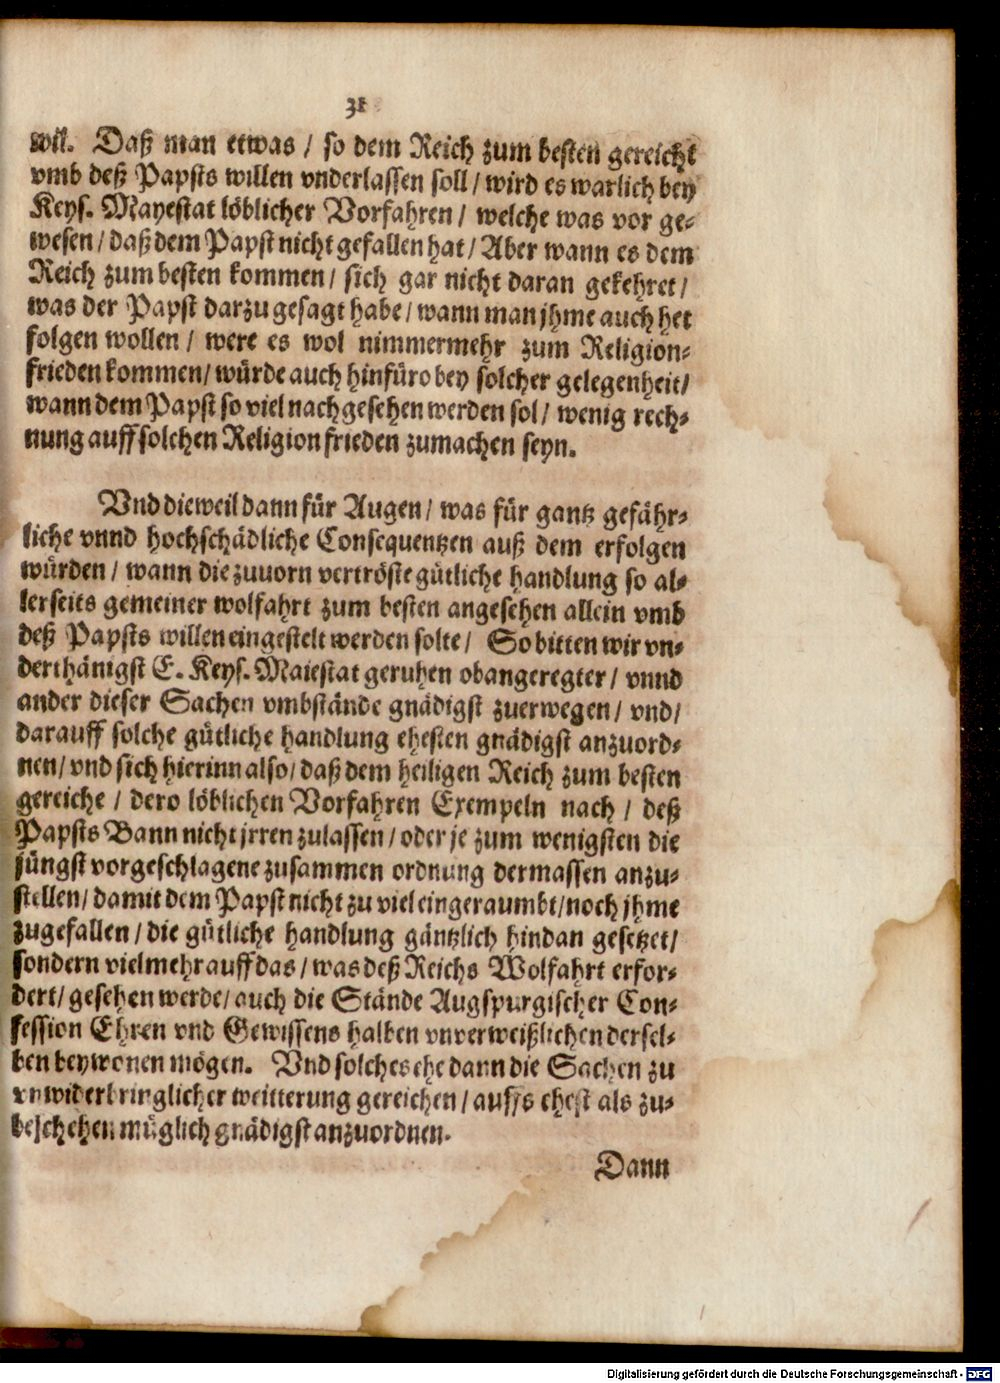 31
wil. Daß man etwas / so dem Reich zum besten gereicht
vmb deß Papsts willen vnderlassen soll / wird es warlich bey
Keys. Mayestat löblicher Vorfahren / welche was vor ge-
wesen / daß dem Papst nicht gefallen hat / Aber wann es dem
Reich zum besten kommen / sich gar nicht daran gekehret /
was der Papst darzu gesagt habe / wann man jhme auch het
folgen wollen / were es wol nimmermehr zum Religion-
frieden kommen / würde auch hinfüro bey solcher gelegenheit /
wann dem Papst so viel nachgesehen werden sol / wenig rech-
nung auff solchen Religion frieden zumachen seyn.
Vnd dieweil dann für Augen / was für gantz gefähr-
liche vnnd hochschädliche Consequentzen auß dem erfolgen
würden / wann die zuuorn vertröste gütliche handlung so al-
lerseits gemeiner wolfahrt zum besten angesehen allein vmb
deß Papsts willen eingestelt werden solte / So bitten wir vn-
derthänigst E. Keys. Maiestat geruhen obangeregter / vnnd
ander dieser Sachen vmbstände gnädigst zuerwegen / vnd /
darauff solche gütliche handlung ehesten gnädigst anzuord-
nen / vnd sich hierinn also / daß dem heiligen Reich zum besten
gereiche / dero löblichen Vorfahren Exempeln nach / deß
Papsts Bann nicht jrren zulassen / oder je zum wenigsten die
jüngst vorgeschlagene zusammen ordnung dermassen anzu-
stellen / damit dem Papst nicht zu viel eingeraumbt / noch jhme
zugefallen / die gütliche handlung gäntzlich hindan gesetzet /
sondern vielmehr auff das / was deß Reichs Wolfahrt erfor-
dert / gesehen werde / auch die Stände Augspurgischer Con-
fession Ehren vnd Gewissens halben vnverweißlichen dersel-
ben beywonen mögen. Vnd solches ehe dann die Sachen zu
vnwiderbringlicher weitterung gereichen / auffs ehest als zu-
beschehen müglich gnädigst anzuordnen.
Dann
Digitalisierung gefördert durch die Deutsche Forschungsgemeinschaft - DFG